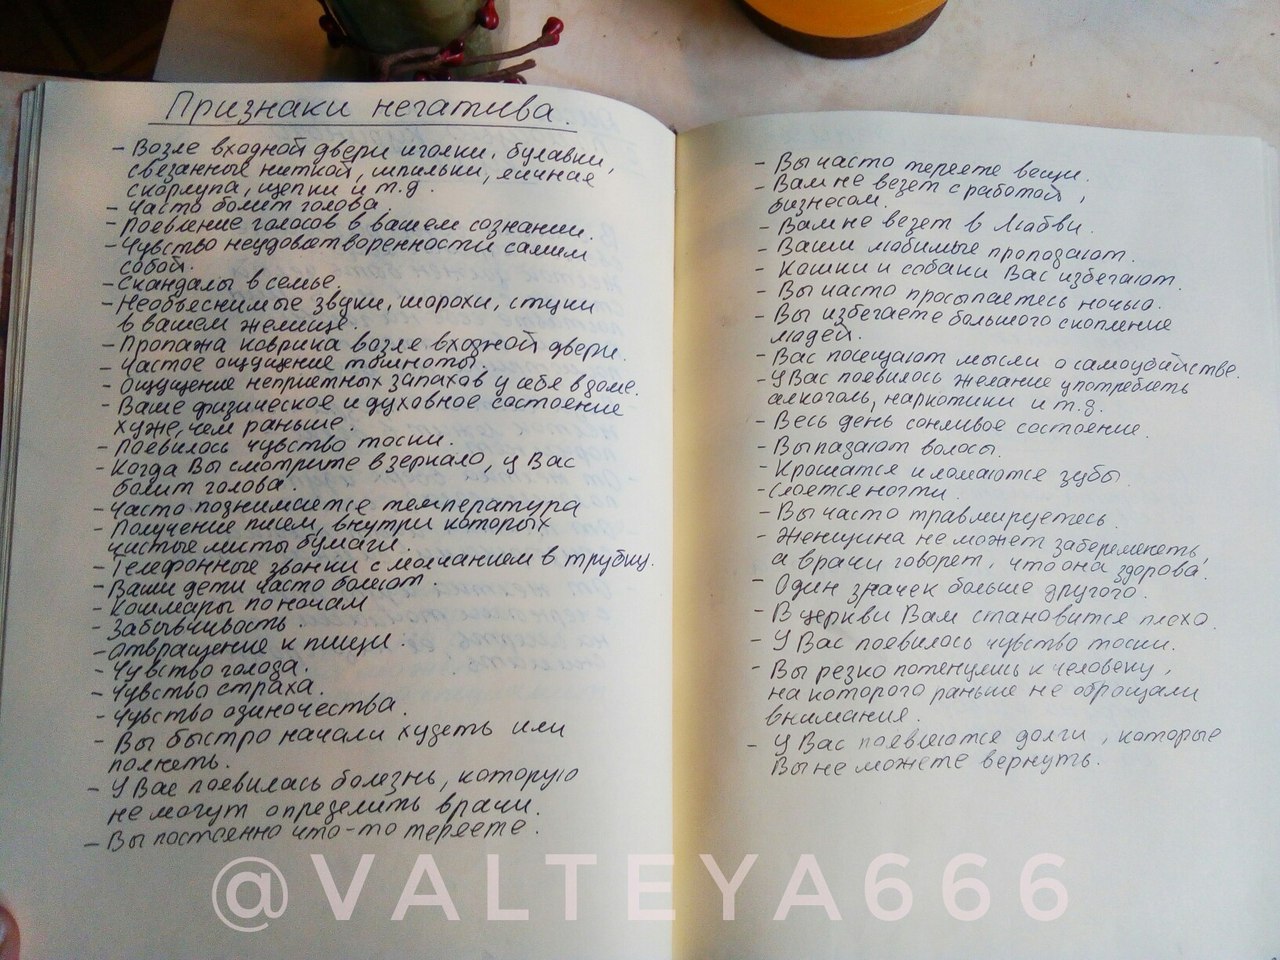 Признаки негатива.
- Возле входной двери иголки, булавки,
свезанные ниткой, шпильки, яичная
скорлупа, щепки и т.д.
- Часто болит голова.
- Поевление голосов в вашем сознании.
- Чувство неудовлетворенности самим
собой.
- Скандалы в семье.
- Необъеснимые звуки, шорохи, стуки
в вашем желище.
- Пропажа коврика возле входной двери.
- Частое ощущение тошноты.
- Ощущение неприетных запахов у себя в доме.
- Ваше физическое и духовное состоение
хуже, чем раньше.
- Поевилось чувство тоски.
- Когда Вы смотрите в зеркало, у Вас
болит голова.
- Часто поднимается температура
- Получение писем, внутри которых
чистые листы бумаги.
- Телефонные звонки с молчанием в трубку.
- Ваши дети часто болеют
- Кошмары по ночам
- Забывчивость
- отвращение к пищи.
- Чувство голода.
- Чувство страха.
- Чувство одиночества.
- Вы быстро начали худеть или
полнеть.
- У Вас поевилась болезнь, которую
не могут определить врачи.
- Вы постоенно что-то теряете.
- Вы часто теряете вещи.
- Вам не везет с работой,
бизнесом.
- Вам не везет в любви.
- Ваши любимые пропадают.
- Кошки и собаки Вас избегают.
- Вы часто просыпаетесь ночью.
- Вы избегаете большого скопление
людей.
- Вас посещают мысли о самоубийстве.
- У Вас поевилось желание употреблять
алкоголь, наркотики и т.д.
- Весь день сонливое состоение.
- Выпадают волосы.
- Крошатся и ломаются зубы
- Слоетсе ногти.
- Вы часто травмируетесь.
- Женщина не может забеременеть,
а врачи говорет, что она здорова.
- Один зрачек больше другого.
- В церкви Вам становится плохо.
- У Вас поевилось чувство тоски.
- Вы резко потенулись к человеку,
на которого раньше не обращали
внимания.
- У Вас поевлеются долги, которые
Вы не можете вернуть.
@VALTEYA666